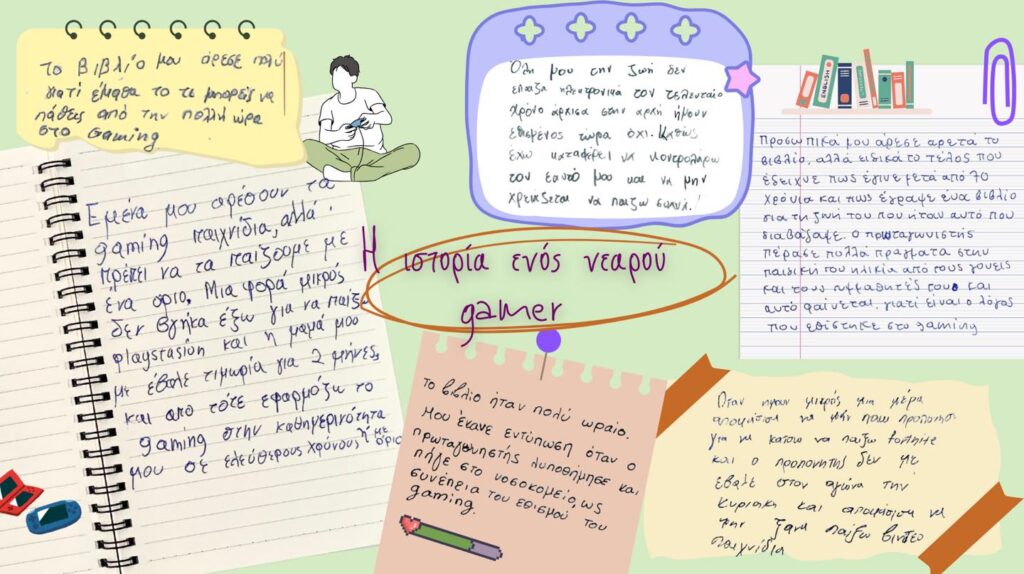 Το βιβλίο μου άρεσε πολύ
γιατί έμαθα το τι μπορείς να
πάθεις από την πολλή ώρα
στο Gaming.
Εμένα μου αρέσουν τα
gaming παιχνίδια, αλλά
πρέπει να τα παίζουμε με
ένα όριο. Μια φορά μικρός
δεν βγήκα έξω για να παίξω
playstasion και η μαμά μου
με έβαλε τιμωρία για 2 μήνες,
και από τότε εφαρμόζω το
gaming στην καθημερινότητα
μου σε ελεύθερους χρόνους ή με όριο
Όλη μου την ζωή δεν
έπαιζα ηλεκτρονικά τον τελευταίο
χρόνο άρχισα στην αρχή ήμουν
εθισμένος τώρα όχι. Καθώς
έχω καταφέρει να κοντρολάρω
τον εαυτό μου και να μην
χρειάζεται να παίξω
Η ιστορία ενός νεαρού
gamer
ENGLISH
Προσωπικά μου άρεσε αρετά το
βιβλίο, αλλά ειδικά το τέλος που
έδειχνε πως έγινε μετά από 70
χρόνια και πως έγραψε ένα βιβλίο
για τη ζωή του που ήταν αυτό που
διαβάζαμε. Ο πρωταγωνιστής
πέρασε πολλά πράγματα στην
παιδική του ηλικία από τους γονείς
και τους συμμαθητές του και
αυτό φαίνεται, γιατί είναι ο λόγος
που εθίστηκε στο gaming
Το βιβλίο ήταν πολύ ωραίο.
Μου έκανε εντύπωση όταν ο
πρωταγωνηστής λυποθήμησε και
πήγε στο νοσοκομείο, ως
συνέπεια του εθισμού του
gaming.
Όταν ήμουν μικρός μια μέρα
αποφάσισα να μην πάω προπόνηση
για να κάτσω να παίξω fortnite
και ο προπονητής δεν με
έβαλε στον αγώνα την
Κυριακη και αποφάσισα να
μην ξανα παίξω βιντεο
παιχνίδια